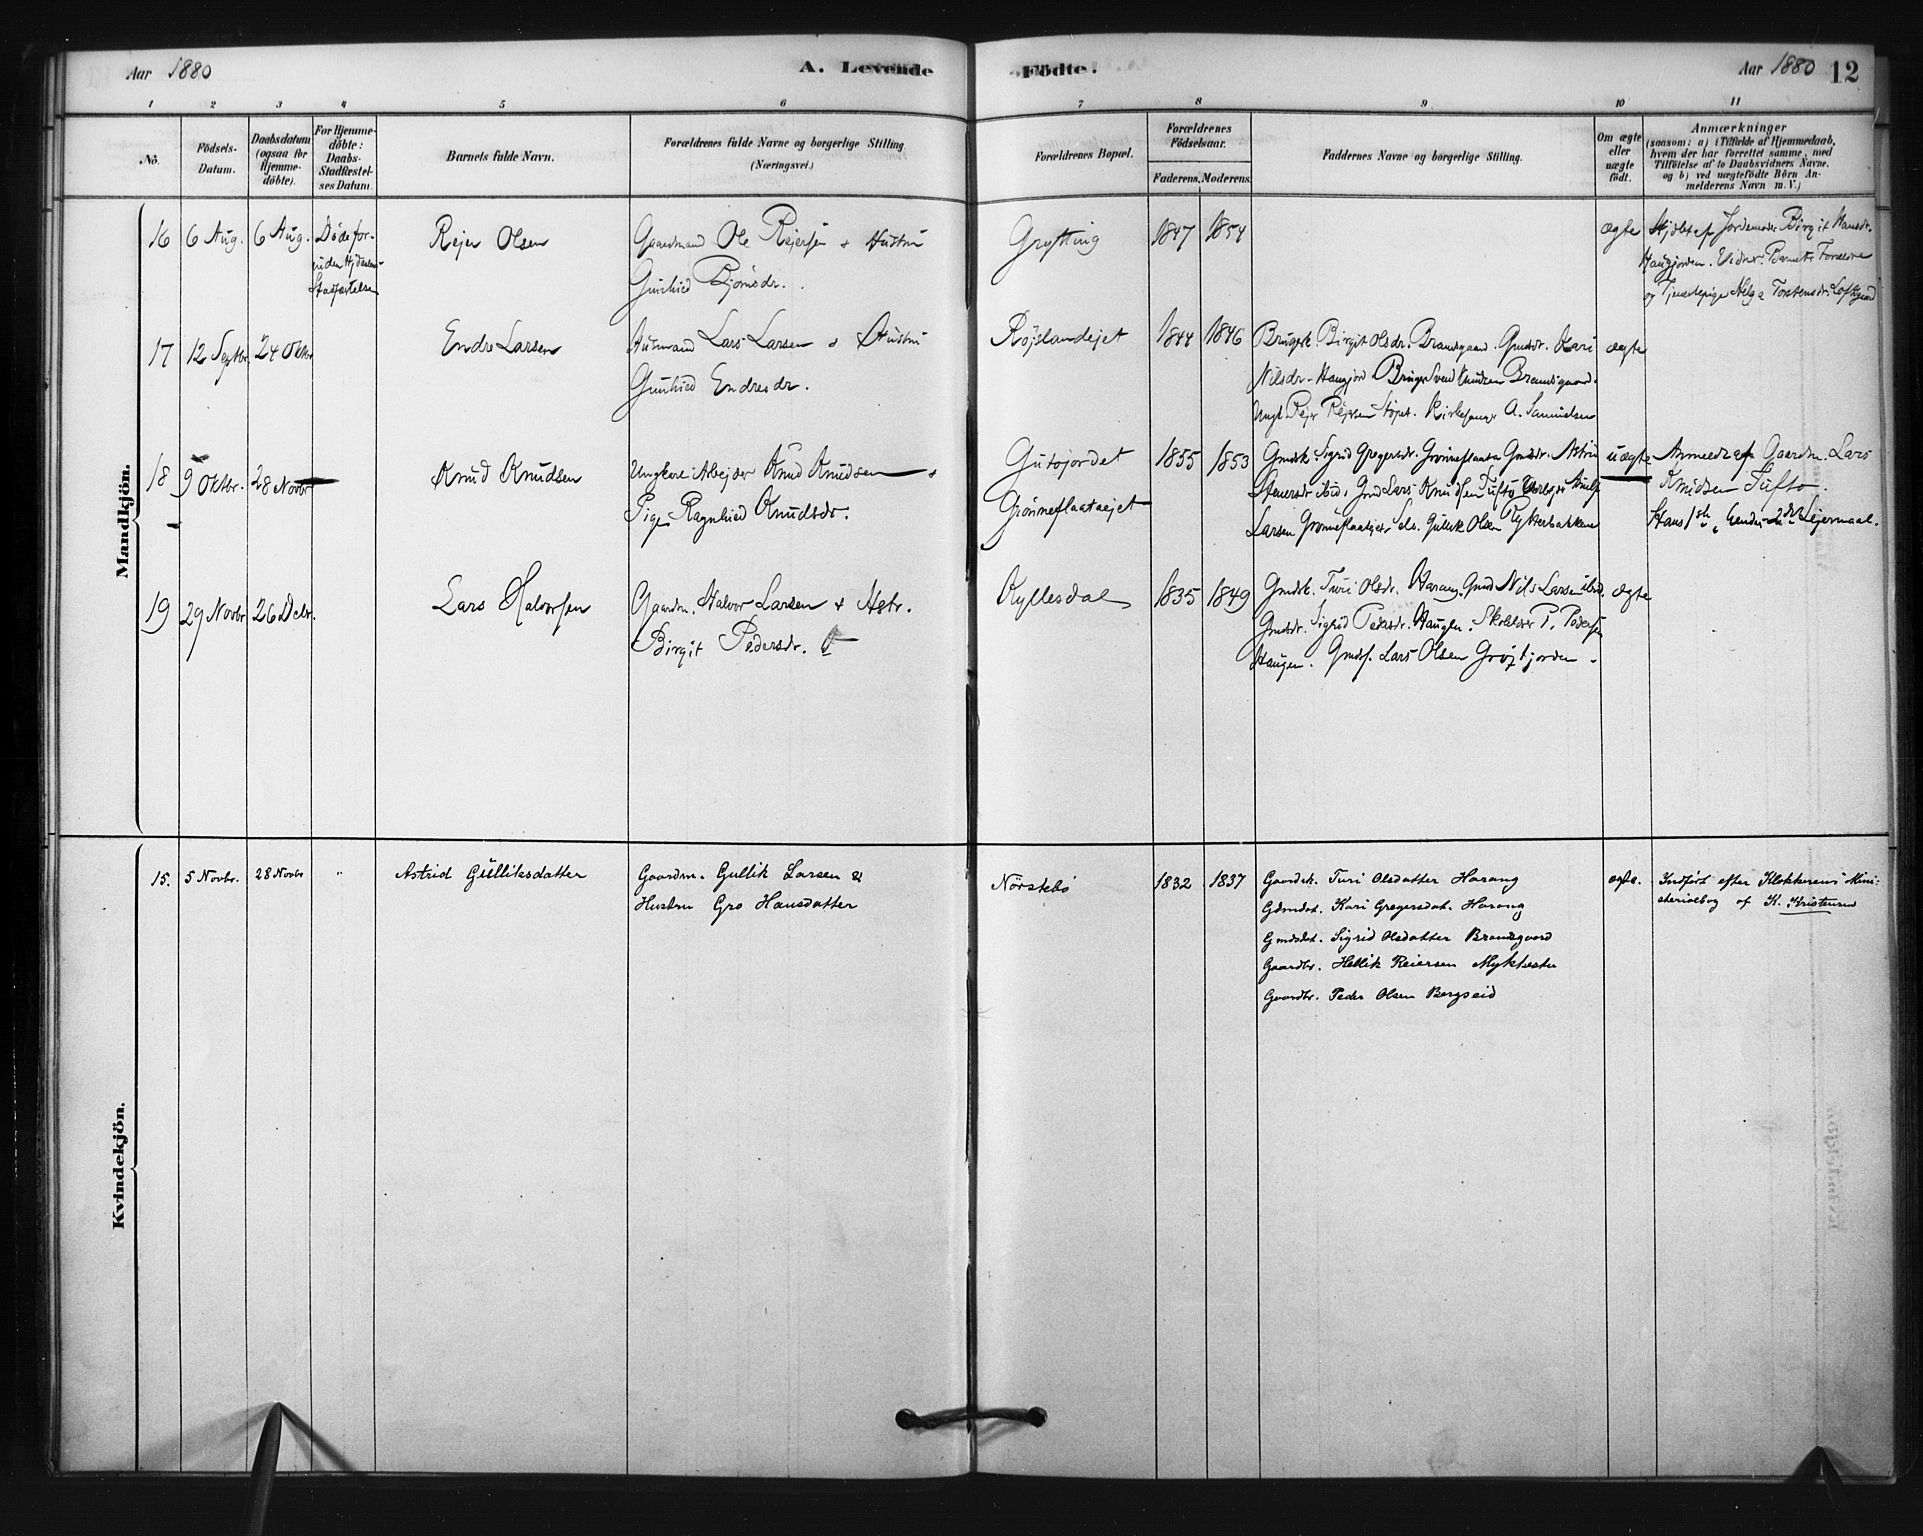 Aar 1880 A. Levende Födte. Aar 1880 12
1 2 3 4 5 6 7 8 9 10 11
No. Födsels-Datum. Daabsdatum (ogsaa for Hjemme-döbte). For Hjemme-döbte: Daabs-Stadfæstel-ses Datum. Barnets fulde Navn. Forældrenes fulde Navne og borgerlige Stilling (Næringsvei.) Forældrenes Bopæl. Forældrenes Födselsaar. Faderens. Moderens. Faddernes Navne og borgerlige Stilling. Om ægte eller uægte födt. Anmærkninger (saasom: a) i Tilfælde af Hjemmedaab, hvem der har forrettet samme, med Tilföielse af to Daabsvidners Navne, og b) ved uægtefödte Börn An-melderens Navn m. V.)
Mandkjön.
16 6 Aug. 6 Aug. Døde for- Rejer Olsen Gaardmand Ole Rejersen & Hustru Grytting 1847 1854 ægte Hjdbt af Jordemoder Birgit Hansdr.
uden Stadfæstelse Gunhild Bjørnsdr. Haugjorden. Vidner: Barnets Forældre
og Tjenestepige Helga Torstensdr. Loftsgaard
17 12 Septbr. 24 Oktbr Endre Larsen Husmand Lars Larsen & Hustru Røjslandejet 1844 1846 Brugerk. Birgit Olsdr. Brandsgaard. Gmdsdr. Kari ægte
Gunhild Endresdr. Nilsdr. Haugjord Bruger Svend Knudsen Brandsgaard.
Ungk. Rejer Rejersen Kirkesanger A. Samuelsen
18 9 Oktbr. 28 Novbr Knud Knudsen Ungkarl Arbejder Knud Knudsen & Gutujordet 1855 1853 Gmdsk. Sigrid Gregersdr. Grønneflaata Gmdsdr. Astrid uægte Anmeldt af Gaardm. Lars
Pige Ragnhild Knudsdr. Grønneflaataejet Gmd Lars Knudsen Tufto Knudsen Tufto.
Larsen Grønneflaataejet Gulik Olsen Hans 1ste, hendes 2det Lejermaal.
19 29 Novbr 26 Decbr. Lars Halvorsen Gaardm. Halvor Larsen & Hstr. Kyllesdal 1835 1849 Gmdsk. Turi Olsdr. Harang. Gmd Nils Larsen ibid. ægte
Birgit Pedersdr. Gmdsdr. Sigrid Pedersdr. Haugen. Skolelærer P. Pedersen
Haugen. Gmds. Lars Olsen
Kvindekjön.
15. 5 Novbr. 28 Novbr " Astrid Gulliksdatter Gaardm. Gullik Larsen & Nörstebö 1832 1837 Gaardsk. Turi Olsdatter Harang ægte. Indført efter Klokkerens Mini-
Hustru Gro Hansdatter Gdmdat. Kari Gregersdat. Harang sterialbog af K. Kristensen
Gmdsdat. Sigrid Olsdatter Brandsgaard
Gaardbr. Hellik Reiersen Mykstu
Gaardbr. Peder Olsen Bergseid